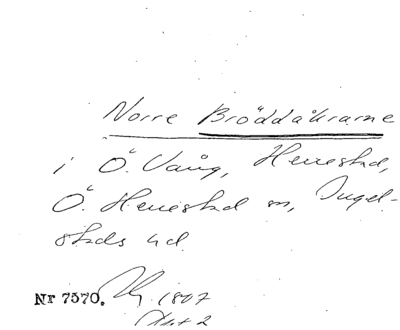 Norre Bröddåkrarne
i Ö. Vång, Herrestad,
Ö. Herrestad sn, Ingel-
stads hd.
Nr 7570. 1807
Akt 2